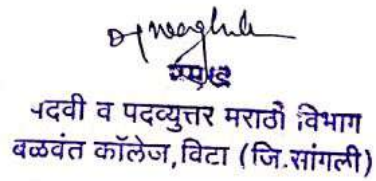 प्रमुख
पदवी व पदव्युत्तर मराठी विभाग
बळवंत कॉलेज,विटा (जि.सांगली)